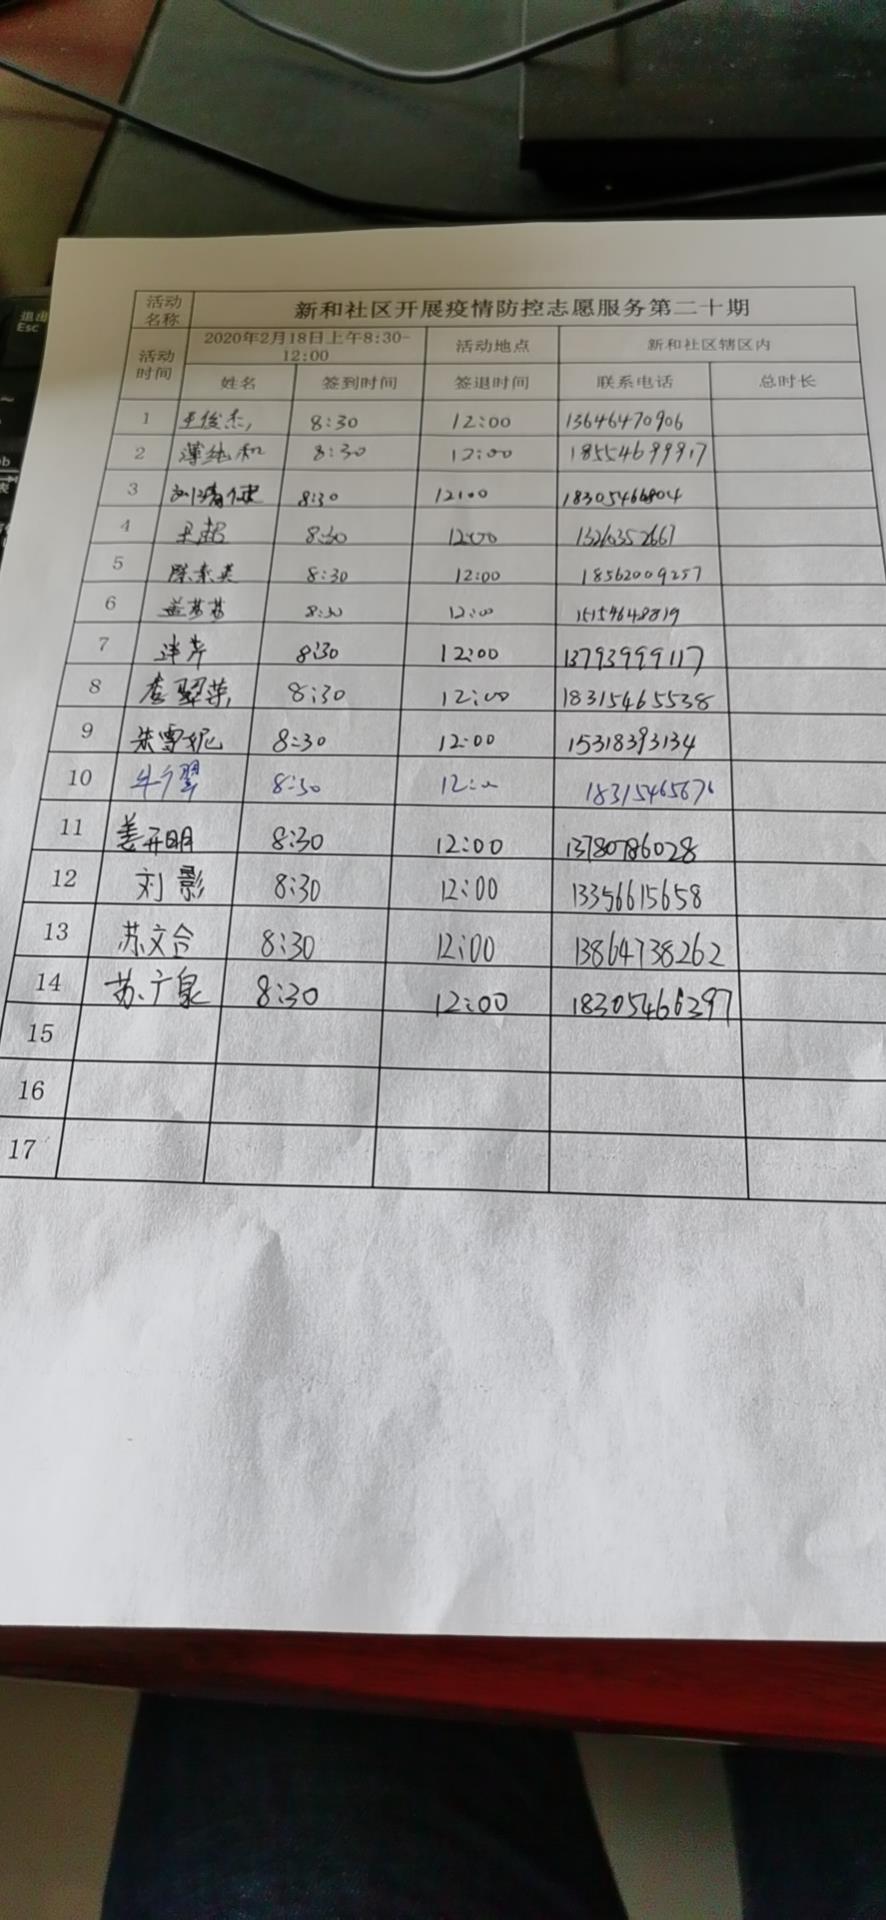 退出
Esc
活动名称 新和社区开展疫情防控志愿服务第二十期
活动时间 2020年2月18日上午8:30-12:00 活动地点 新和社区辖区内
姓名 签到时间 签退时间 联系电话 总时长
1 王俊杰 8:30 12:00 13646470906
2 薄纯和 8:30 12:00 18554699917
3 8:30 12:00 18305466804
4 王超 8:30 12:00 13263526671
5 陈素英 8:30 12:00 18562009257
6 盖苏苏 8:30 12:00 15154648819
7 8:30 12:00 13793999117
8 李翠萍 8:30 12:00 18315465538
9 朱雪妮 8:30 12:00 15318393134
10 8:30 12:00 18315465676
11 姜开明 8:30 12:00 13780786028
12 刘影 8:30 12:00 13356615658
13 苏文合 8:30 12:00 13864738262
14 苏广泉 8:30 12:00 18305466397
15
16
17